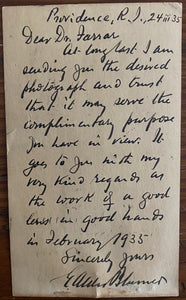 Providence, R.I., 24 iii 35
Dear Dr. Farrar
At long last I am
sending you the desired
photograph and trust
that it may serve the
complimentary purpose
you have in view. It
goes to you with my
very kind regards as
the work of a good
lens in good hands
in February 1935
Sincerely yours
G. Alder Blumer